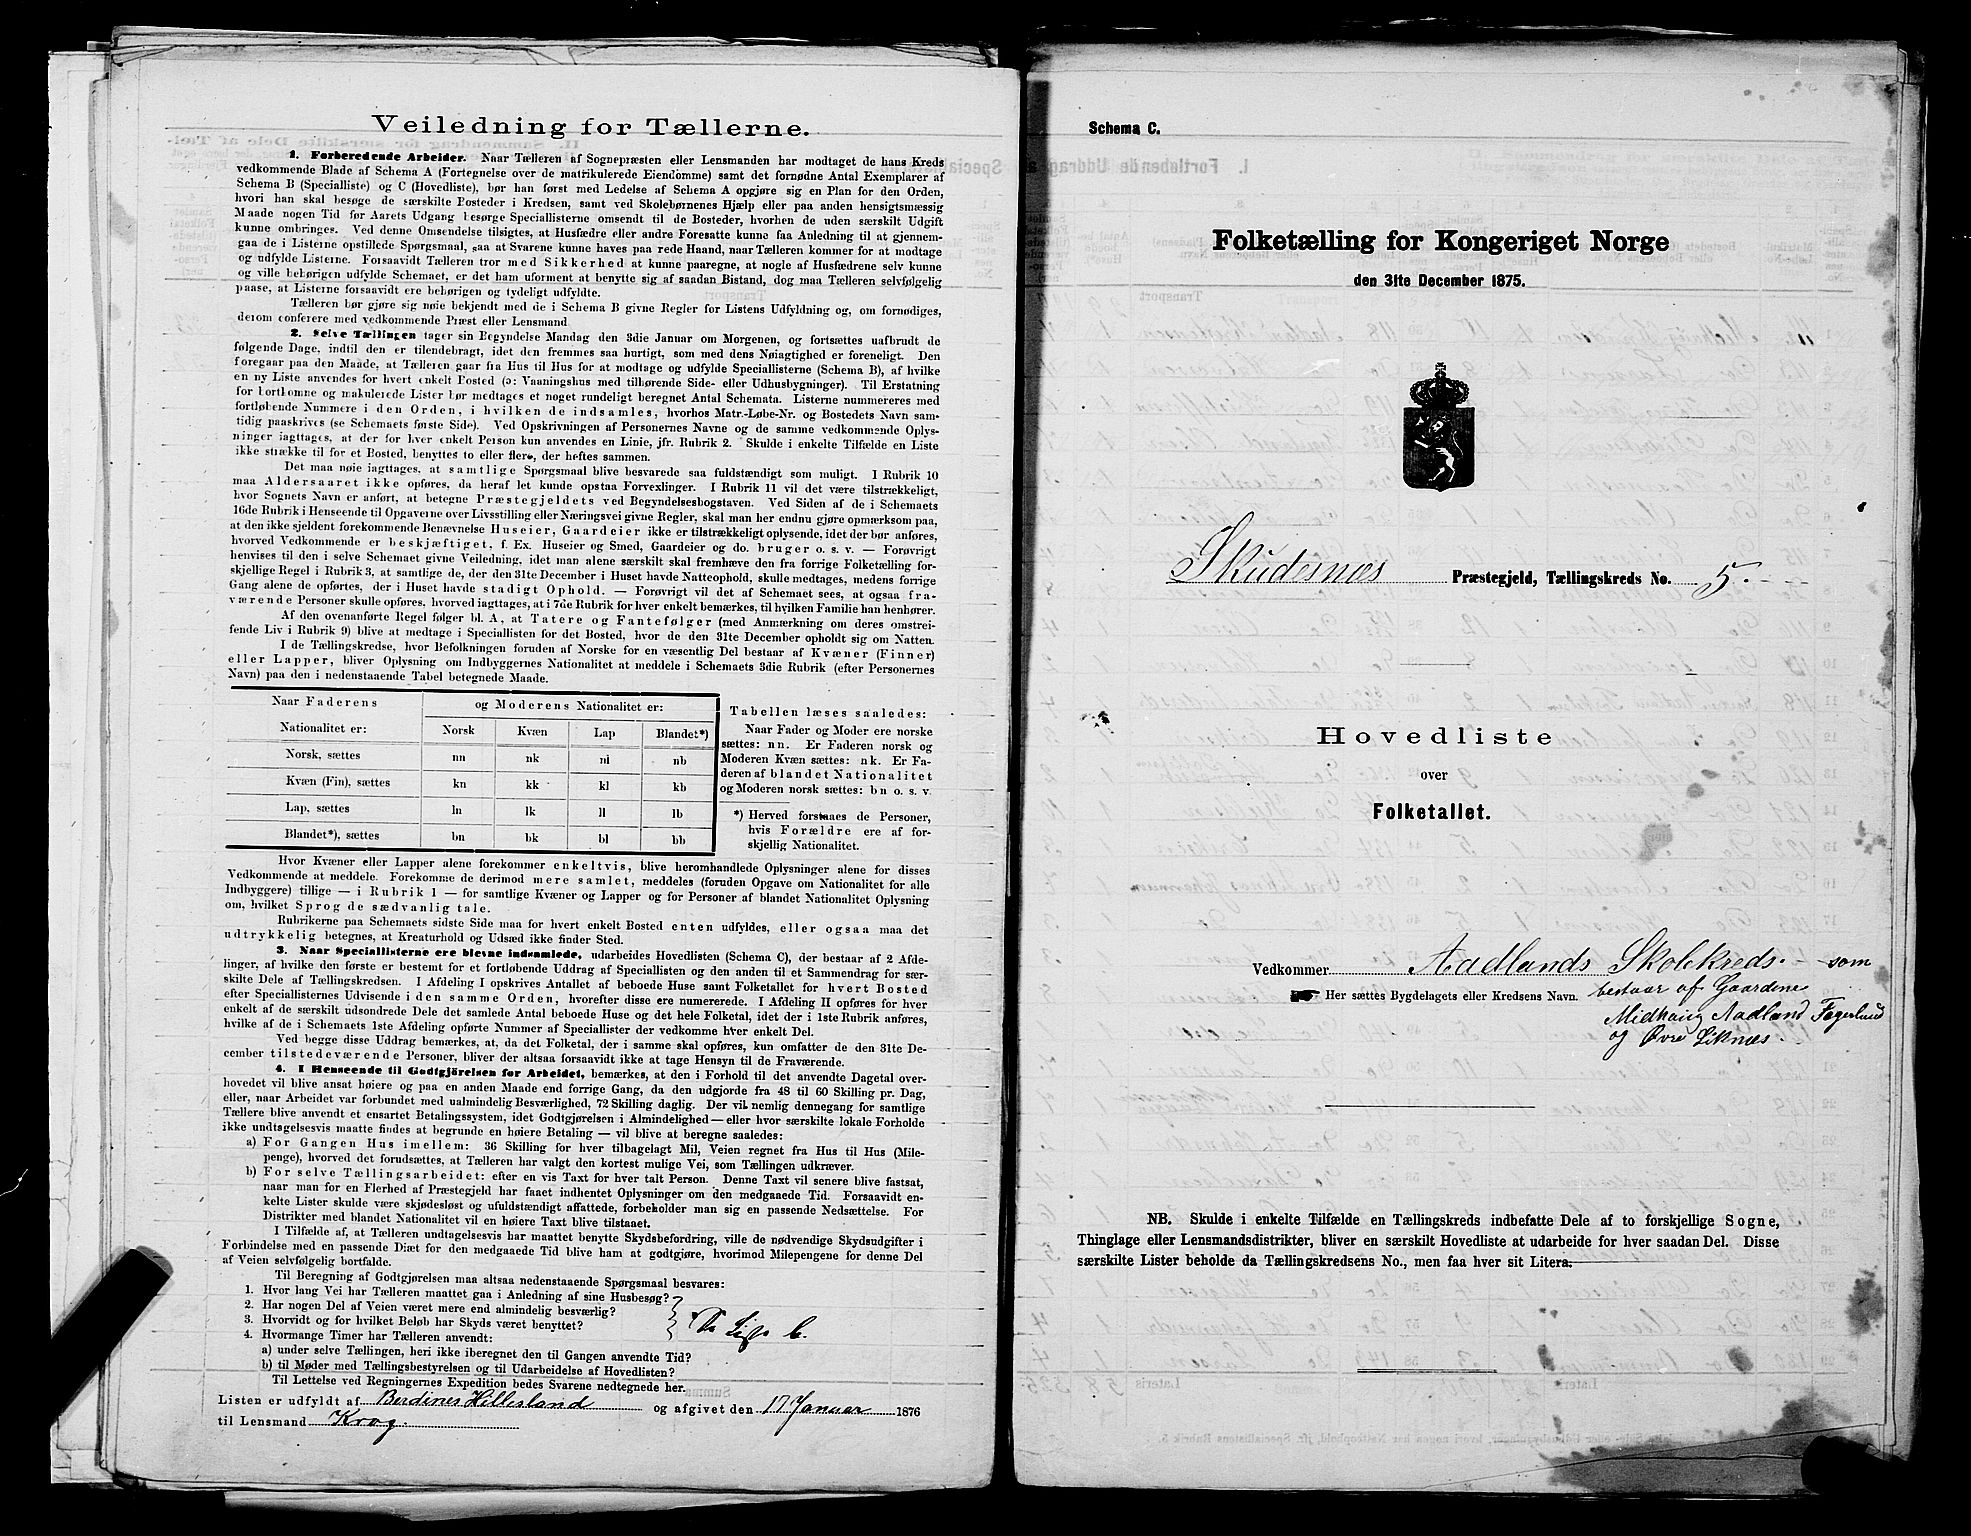 Veiledning for Tællerne.
1. Forberedende Arbeider. Naar Tælleren af Sognepræsten eller Lensmanden har modtaget de hans Kreds
vedkommende Blade af Schema A (Fortegnelse over de matrikulerede Eiendomme) samt det fornødne Antal Exemplarer af
Schema B (Specialliste) og C (Hovedliste), bør han først med Ledelse af Schema A opgjøre sig en Plan for den Orden,
hvori han skal besøge de særskilte Bosteder i Kredsen, samt ved Skolebørnenes Hjælp eller paa anden hensigtsmæssig
Maade nogen Tid før Aarets Udgang besørge Speciallisterne omsendt til de Bosteder, hvorhen de uden særskilt Udgift
kunne ombringes. Ved denne Omsendelse tilsigtes, at Husfædre eller andre Foresatte kunne faa Anledning til at gjennem-
gaa de i Listerne opstillede Spørgsmaal, saa at Svarene kunne haves paa rede Haand, naar Tælleren kommer for at modtage
og udfylde Listerne. Forsaavidt Tælleren tror med Sikkerhed at kunne paaregne, at nogle af Husfædrene selv kunne
og ville behørigen udfylde Schemaet, er det ham uforment at benytte sig af saadan Bistand, dog maa Tælleren selvfølgelig
paase, at Listerne forsaavidt ere behørigen og tydeligt udfyldte.
Tælleren bør gjøre sig nøie bekjendt med de i Schema B givne Regler for Listens Udfyldning og, om fornødiges,
derom conferere med vedkommende Præst eller Lensmand
2. Selve Tællingen tager sin Begyndelse Mandag den 3die Januar om Morgenen, og fortsættes uafbrudt de
følgende Dage, indtil den er tilendebragt, idet den fremmes saa hurtigt, som med dens Nøiagtighed er foreneligt. Den
foregaar paa den Maade, at Tælleren gaar fra Hus til Hus for at modtage og udfylde Speciallisterne (Schema B), af hvilke
en ny Liste anvendes for hvert enkelt Bosted (ɔ: Vaaningshus med tilhørende Side- eller Udhusbygninger). Til Erstatning
for bortkomne og makulerede Lister bør medtages et noget rundeligt beregnet Antal Schemata. Listerne nummereres med
fortløbende Nummere i den Orden, i hvilken de indsamles, hvorhos Matr.-Løbe-Nr. og Bostedets Navn sam-
tidig paaskrives (se Schemaets første Side). Ved Opskrivningen af Personernes Navne og de samme vedkommende Oplys-
ninger iagttages, at der for hver enkelt Person kun anvendes en Linie, jfr. Rubrik 2. Skulde i enkelte Tilfælde en Liste
ikke strække til for et Bosted, benyttes to eller flere, der heftes sammen.
Det maa nøie iagttages, at samtlige Spørgsmaal blive besvarede saa fuldstændigt som muligt. I Rubrik 10
maa Aldersaaret ikke opføres, da heraf let kunde opstaa Forvexlinger. I Rubrik 11 vil det være tilstrækkeligt,
hvor Sognets Navn er anført, at betegne Præstegjeldets ved Begyndelsesbogstaven. Ved Siden af de i Schemaets
16de Rubrik i Henseende til Opgaverne over Livsstilling eller Næringsvei givne Regler, skal man her endnu gjøre opmærksom paa,
at den ikke sjeldent forekommende Benævnelse Huseier, Gaardeier ikke er tilstrækkeligt oplysende, idet der bør anføres,
hvorved Vedkommende er beskjæftiget, f. Ex. Huseier og Smed, Gaardeier og do. bruger o. s. v. — Forøvrigt
henvises til den i selve Schemaet givne Veiledning, idet man alene særskilt skal fremhæve den fra forrige Folketælling for-
skjellige Regel i Rubrik 3, at samtlige de, der den 31te December i Huset havde Natteophold, skulle medtages, medens forrige
Gang alene de opførtes, der i Huset havde stadigt Ophold. — Forøvrigt vil det af Schemaet sees, at ogsaa fra-
værende Personer skulle opføres, hvorved iagttages, at i 7de Rubrik for hver enkelt bemærkes, til hvilken Familie han henhører.
Af den ovenanførte Regel følger bl. A, at Tatere og Fantefølger (med Anmærkning om deres omstrei-
fende Liv i Rubrik 9) blive at medtage i Speciallisten for det Bosted, hvor de den 31te December opholdt sig om Natten.
I de Tællingskredse, hvor Befolkningen foruden af Norske for en væsentlig Del bestaar af Kvæner (Finner)
eller Lapper, bliver Oplysning om Indbyggernes Nationalitet at meddele i Schemaets 3die Rubrik (efter Personernes
Navn) paa den i nedenstaaende Tabel betegnede Maade.
Naar Faderens og Moderens Nationalitet er:
Nationalitet er: Norsk Kvæn Lap Blandet*)
Norsk, sættes nn nk nl nb
Kvæn (Fin), sættes kn kk kl kb
Lap, sættes ln lk ll lb
Blandet*), sættes bn bk bl bb
Tabellen læses saaledes:
Naar Fader og Moder ere norske
sættes: nn. Er Faderen norsk og
Moderen Kvæn sættes: nk. Er Fa-
deren af blandet Nationalitet
og Moderen norsk sættes: bn o. s. v.
*) Herved forstaaes de Personer,
hvis Forældre ere af for-
skjellig Nationalitet.
Hvor Kvæner eller Lapper alene forekommer enkeltvis, blive heromhandlede Oplysninger alene for disses
Vedkommende at meddele. Forekomme de derimod mere samlet, meddeles (foruden Opgave om Nationalitet for alle
Indbyggere) tillige — i Rubrik 1 — for samtlige Kvæner og Lapper og for Personer af blandet Nationalitet Oplysning
om, hvilket Sprog de sædvanlig tale.
Rubrikerne paa Schemaets sidste Side maa for hvert enkelt Bosted enten udfyldes, eller ogsaa maa det
udtrykkelig betegnes, at Kreaturhold og Udsæd ikke finder Sted.
3. Naar Speciallisterne ere blevne indsamlede, udarbeides Hovedlisten (Schema C), der bestaar af 2 Afde-
linger, af hvilke den første er bestemt for et fortløbende Uddrag af Speciallisten og den anden til et Sammendrag for sær-
skilte Dele af Tællingskredsen. I Afdeling I opskrives Antallet af beboede Huse samt Folketallet for hvert Bosted
efter Speciallistens Udvisende i den samme Orden, hvorefter disse ere numererede. I Afdeling II opføres for hver
enkelt af de særskilt udsondrede Dele det samlede Antal beboede Huse og det hele Folketal, idet der i 1ste Rubrik anføres,
hvilke af de i Schemaets 1ste Afdeling opførte Nummer af Speciallister der vedkomme hver enkelt Del.
Ved begge disse Uddrag bemærkes, at, da det Folketal, der i samme skal opføres, kun omfatter de den 31te De-
cember tilstedeværende Personer, bliver der altsaa forsaavidt ikke at tage Hensyn til de Fraværende.
4. I Henseende til Godtgjörelsen for Arbeidet, bemærkes, at den i Forhold til det anvendte Dagetal over-
hovedet vil blive ansat høiere og paa en anden Maade end forrige Gang, da den udgjorde fra 48 til 60 Skilling pr. Dag,
eller, naar Arbeidet var forbundet med ualmindelig Besværlighed, 72 Skilling daglig. Der vil nemlig dennegang for samtlige
Tællere blive anvendt et ensartet Betalingssystem, idet Godtgjörelsen i Almindelighed — eller hvor særskilte lokale Forholde
ikke undtagelsesvis maatte findes at begrunde en høiere Betaling — vil blive at beregne saaledes:
a) For Gangen Hus imellem: 36 Skilling for hver tilbagelagt Mil, Veien regnet fra Hus til Hus (Mile-
penge), hvorved det forudsættes, at Tælleren har valgt den kortest mulige Vei, som Tællingen udkræver.
b) For selve Tællingsarbeidet: efter en vis Taxt for hver talt Person. Denne Taxt vil senere blive fastsat,
naar man for en Flerhed af Præstegjeld har faaet indhentet Oplysninger om den medgaaede Tid. Forsaavidt en-
kelte Lister skulde være skjødesløst og ufuldstændigt affattede, forbeholder man sig en passende Nedsættelse. For
Distrikter med blandet Nationalitet vil en høiere Taxt blive tilstaaet.
I Tilfælde af, at Tælleren undtagelsesvis har maattet benytte Skydsbefordring, ville de nødvendige Skydsudgifter i
Forbindelse med en passende Diæt for den medgaaede Tid blive ham at godtgjøre, hvorimod Milepengene for denne Del
af Veien selvfølgelig bortfalde.
Til Beregning af Godtgjörelsen maa altsaa nedenstaaende Spørgsmaal besvares:
1. Hvor lang Vei har Tælleren maattet gaa i Anledning af sine Husbesøg?
2. Har nogen Del af Veien været mere end almindelig besværlig?
3. Hvorvidt og for hvilket Beløb har Skyds været benyttet?
4. Hvormange Timer har Tælleren anvendt:
a) under selve Tællingen, heri ikke iberegnet den til Gangen anvendte Tid?
b) til Møder med Tællingsbestyrelsen og til Udarbeidelse af Hovedlisten?
Til Lettelse ved Regningernes Expedition bedes Svarene nedtegnede her.
Listen er udfyldt af Berdines Hillesland og afgivet den 17 Januar 1876
til Lensmand Krog.
Schema C.
Folketælling for Kongeriget Norge
den 31te December 1875.
Skudesnæs Præstegjeld, Tællingskreds No. 5.
Hovedliste
over
Folketallet.
Vedkommer Aadlands Skolekreds. som
Her sættes Bygdelagets eller Kredsens Navn. bestaar af Gaardene
Midhaug Aadland Fagerland
og Øvre Liknæs.
NB. Skulde i enkelte Tilfælde en Tællingskreds indbefatte Dele af to forskjellige Sogne,
Thinglage eller Lensmandsdistrikter, bliver en særskilt Hovedliste at udarbeide for hver saadan Del. Disse
særskilte Lister beholde da Tællingskredsens No., men faa hver sit Litera.